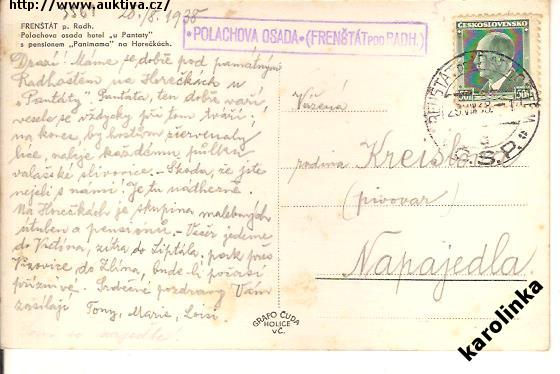 Zdroj: www.auktiva.cz
3361
20./8. 1938
FRENŠTÁT p. Radh.
Polachova osada hotel „u Pantaty"
s pensionem „Panimama" na Horečkách.
• POLACHOVA OSADA • (FRENŠTÁT POD RADH.)
ČESKOSLOVENSKO
50h
Drazí! Máme se dobře pod památným
Radhoštěm na Horečkách u
„Pantáty". Pantáta, ten dobře vaří,
vesele se vždycky při tom tváří;
na konec, by hostům zčervenaly
líce, nalije každému půlku
valašské slivovice. – Škoda, že jste
nejeli s námi! Je tu nádherně.
Na Horečkách je skupina malebných
útulen a pensionů. – Večer jedeme
do Vsetína, zítra do Liptálu, pak přes
Vizovice do Zlína, bude-li počasí
příznivé. Srdečné pozdravy Vám
zasílají Tony, Marie, Loisi.
Vážená
rodina Kreisl
(pivovar)
Napajedla
GRAFO ČUDA
HOLICE
V Č.
karolinka